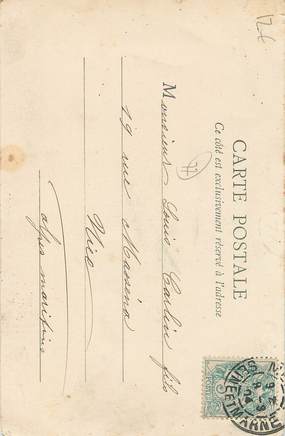 CARTE POSTALE
Ce côté est exclusivement réservé à l'adresse
Monsieur Louis Carlin fils
19 rue Masséna
Nice
alpes maritimes
77
126
SEINE-ET-MARNE